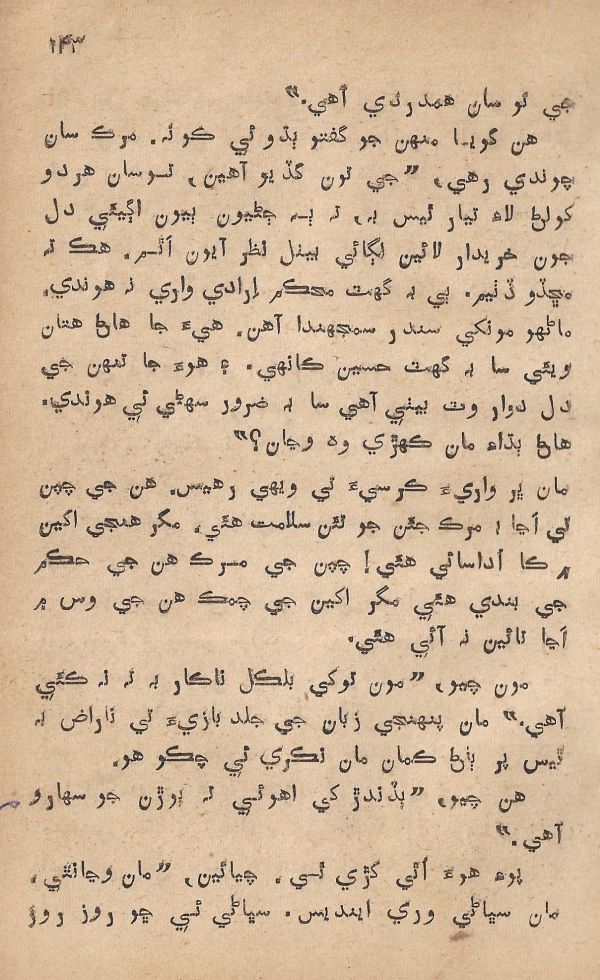 ١٤٣
جي تو سان همدردي آهي.”
هن گويا منهن جو گفتو ٻڌو ئي ڪونه. مرڪ سان
چوندي رهي، ”جي تون گڏيو آهين، تـوسان هردو
کولڻ لاءِ تيار ٿيس به، ته ٻه ڄڻيون ٻيون اڳيئي دل
جون خريدار لائين لڳائي بيٺل نظر آيون اٿـم. هڪ ته
مڇڏو ڏٺيم. ٻي به گهٽ محڪم ارادي واري نه هوندي.
ماڻهو مونکي سندر سمجهندا آهن. هيءَ جا هاڻ هتان
ويئي سا به گهٽ حسين ڪانهي. ۽ هوءَ جا تنهن جي
دل دوار وٽ بيٺي آهي سا به ضرور سهڻي ئي هوندي.
هاڻ ٻڌاءِ مان ڪهڙي وه وڃان؟”
مان ڀر واريءَ ڪرسيءَ تي ويهي رهيس. هن جي چپن
تي اڃا ۽ مرڪ جئن جو تئن سلامت هئي، مگر هنجي اکين
۾ ڪا اُداسائي هئي! چپن جي مـرڪ هن جي حڪم
جي بندي هئي مگر اکين جي چمڪ هن جي وس ۾
اڃا تائين نه آئي هئي.
مون چيو، ”مون توکي بلڪل ناڪار به ته نه ڪئي
آهي.” مان پنهنجي زبان جي جلد بازيءَ تي ناراض به
ٿيس پر ٻاڻ ڪمان مان نڪري ئي چڪو هو.
هن چيو، ”ٻڏندڙ کي اهوئي ته ٻوڙن جو سهارو
آهي.”
پوءِ هوءَ اُٿي کڙي ٿـي. چيائين، ”مان وڃانٿي.
مان سڀاڻي وري اينديس. سڀاڻي ئـي ڇو روز روز